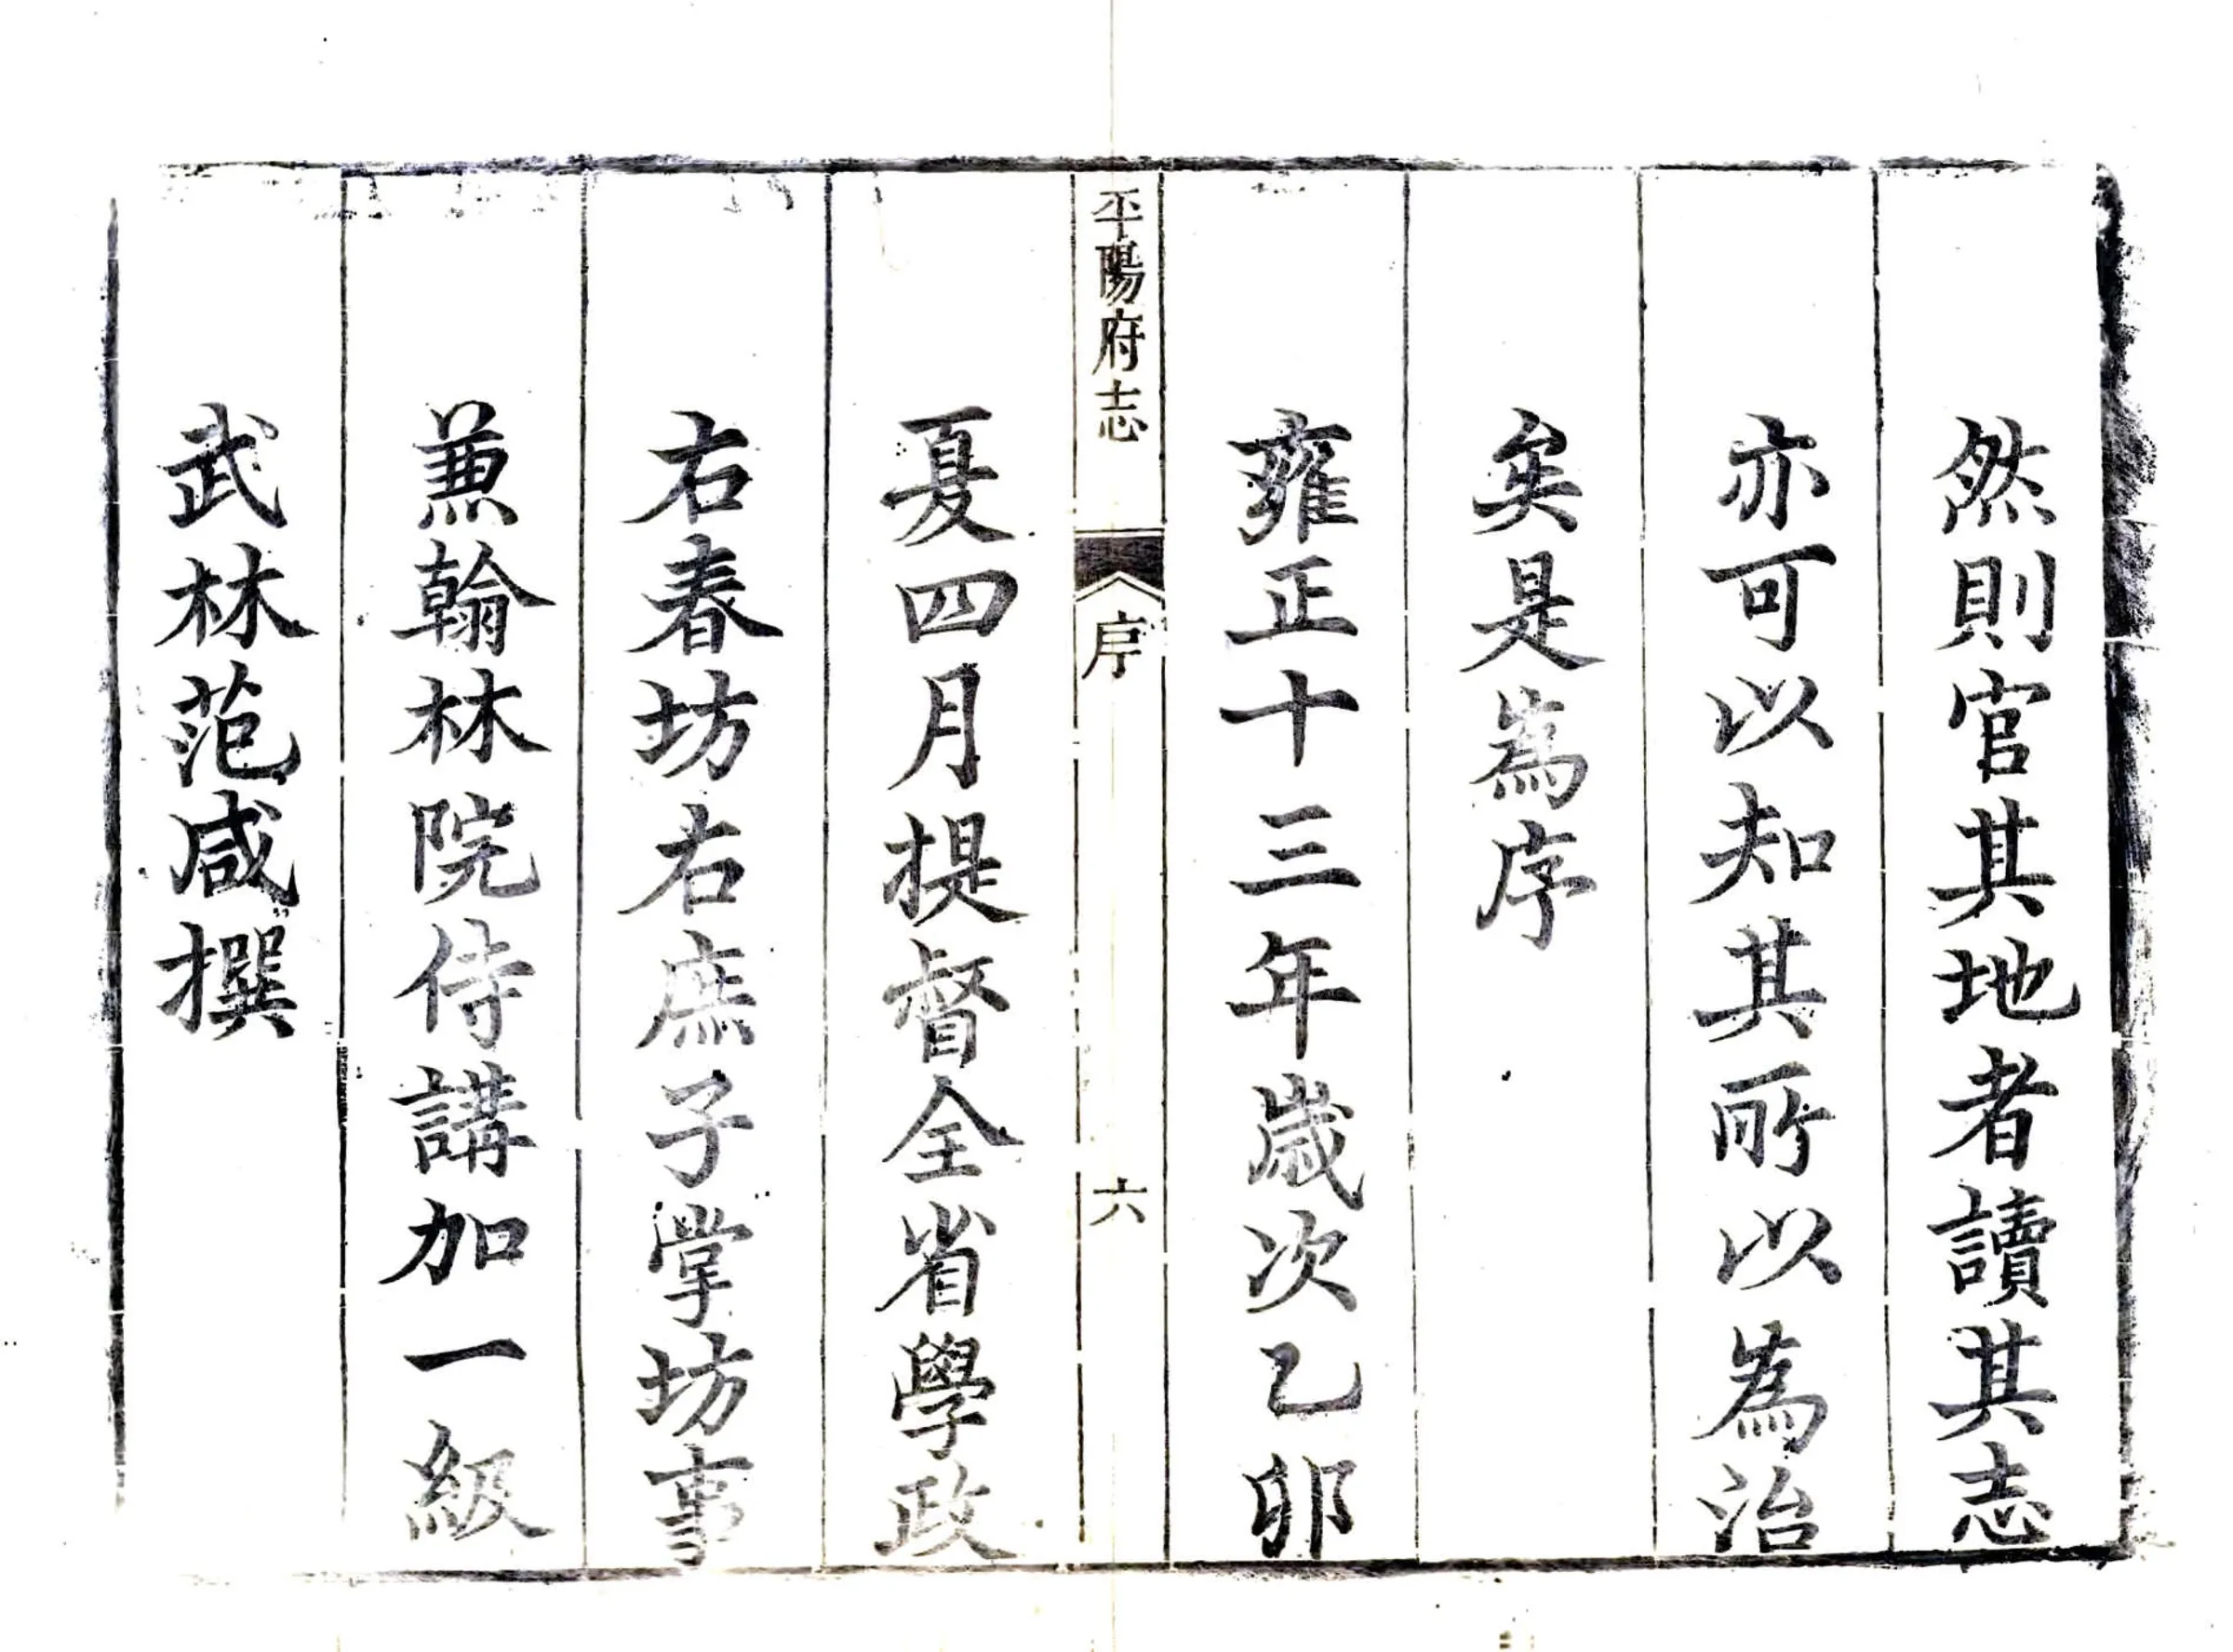 然則官其地者讀其志
亦可以知其所以為治
矣是為序
雍正十三年歲次乙卯
平陽府志 序 六
夏四月提督全省學政
右春坊右庶子掌坊事
兼翰林院侍講加一級
武林范咸撰